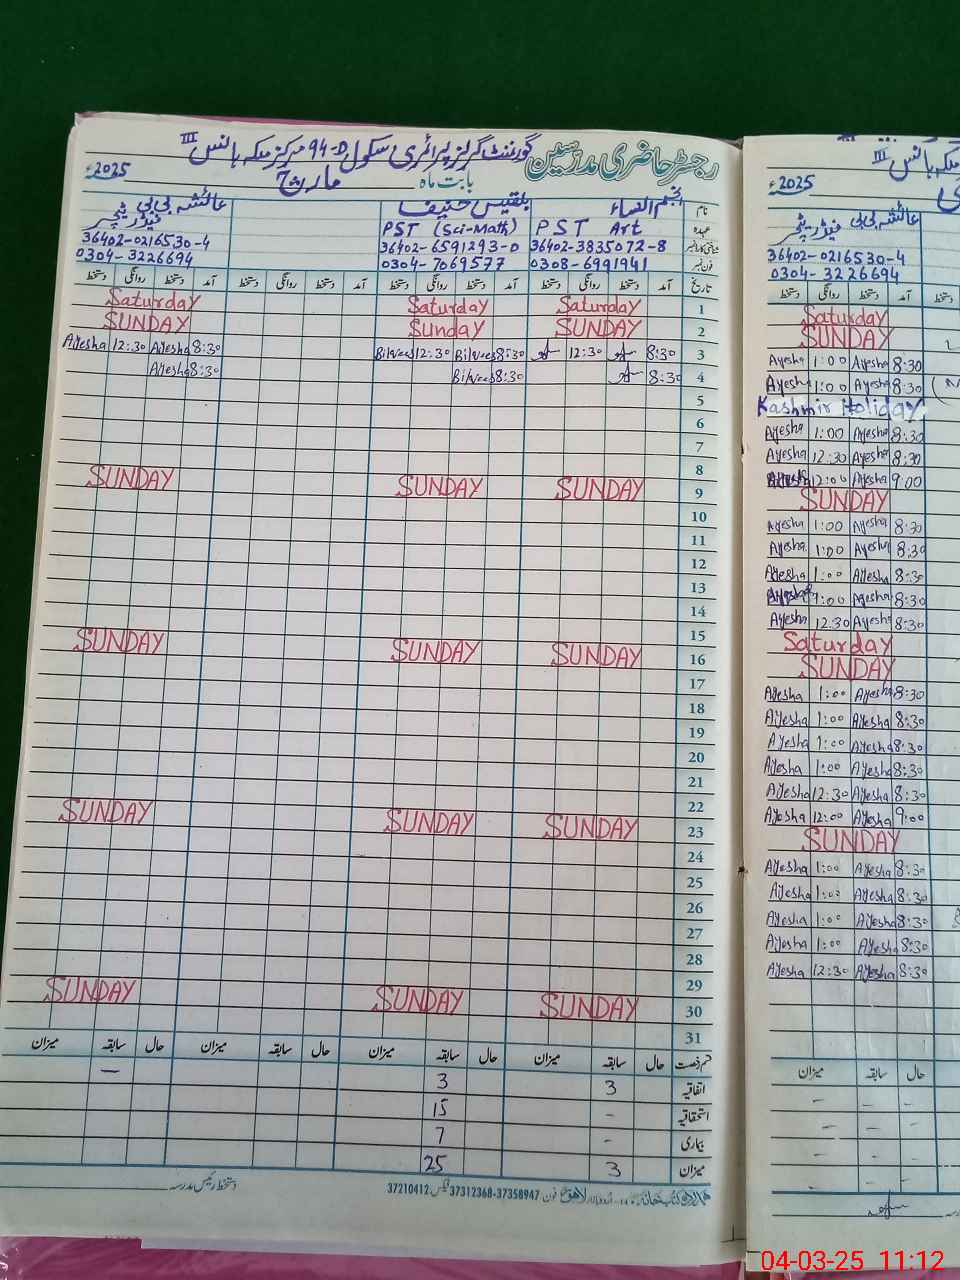 رجسٹر حاضری مدرسین گورنمنٹ گرلز پرائمری سکول 94-D مرکز ملکہ ہانس III
بابت ماہ مارچ 2025ء
نام نجم النساء بلقیس حنیف عائشہ بی بی
عہدہ PST Art PST (Sci-Math) فیڈر ٹیچر
36402-3835072-8 36402-6591293-0 36402-0216530-4
فون نمبر 0308-6991941 0304-7069577 0304-3226694
تاریخ آمد دستخط روانگی دستخط آمد دستخط روانگی دستخط آمد دستخط روانگی دستخط آمد دستخط روانگی دستخط
1 Saturday Saturday Saturday
2 SUNDAY Sunday SUNDAY
3 8:30 12:30 8:30 Bilqees 12:30 Bilqees 8:30 Ayesha 12:30 Ayesha
4 8:30 8:30 Bilqees 8:30 Ayesha
5
6
7
8
9 SUNDAY SUNDAY SUNDAY
10
11
12
13
14
15
16 SUNDAY SUNDAY SUNDAY
17
18
19
20
21
22
23 SUNDAY SUNDAY SUNDAY
24
25
26
27
28
29
30 SUNDAY SUNDAY SUNDAY
31
قسم رخصت حال سابقہ میزان حال سابقہ میزان حال سابقہ میزان حال سابقہ میزان
اتفاقیہ 3 3 –
استحقاقیہ - 15
بیماری - 7
میزان 3 25
اردو بازار لاہور فون 37312368-37358947 فیکس: 37210412
دستخط رئیس مدرسہ
III
2025ء
عائشہ بی بی
فیڈر ٹیچر
36402-0216530-4
0304-3226694
آمد دستخط روانگی دستخط
Saturday
SUNDAY
Ayesha 1:00 Ayesha 8:30
Ayesha 1:00 Ayesha 8:30
Kashmir Holiday
Ayesha 1:00 Ayesha 8:30
Ayesha 12:30 Ayesha 8:30
Ayesha 12:00 Ayesha 9:00
SUNDAY
Ayesha 1:00 Ayesha 8:30
Ayesha 1:00 Ayesha 8:30
Ayesha 1:00 Ayesha 8:30
Ayesha 1:00 Ayesha 8:30
Ayesha 12:30 Ayesha 8:30
Saturday
SUNDAY
Ayesha 1:00 Ayesha 8:30
Ayesha 1:00 Ayesha 8:30
Ayesha 1:00 Ayesha 8:30
Ayesha 1:00 Ayesha 8:30
Ayesha 12:30 Ayesha 8:30
Ayesha 12:00 Ayesha 9:00
SUNDAY
Ayesha 1:00 Ayesha 8:30
Ayesha 1:00 Ayesha 8:30
Ayesha 1:00 Ayesha 8:30
Ayesha 1:00 Ayesha 8:30
Ayesha 12:30 Ayesha 8:30
حال سابقہ میزان
- - -
- - -
- - -
- - -
04-03-25 11:12